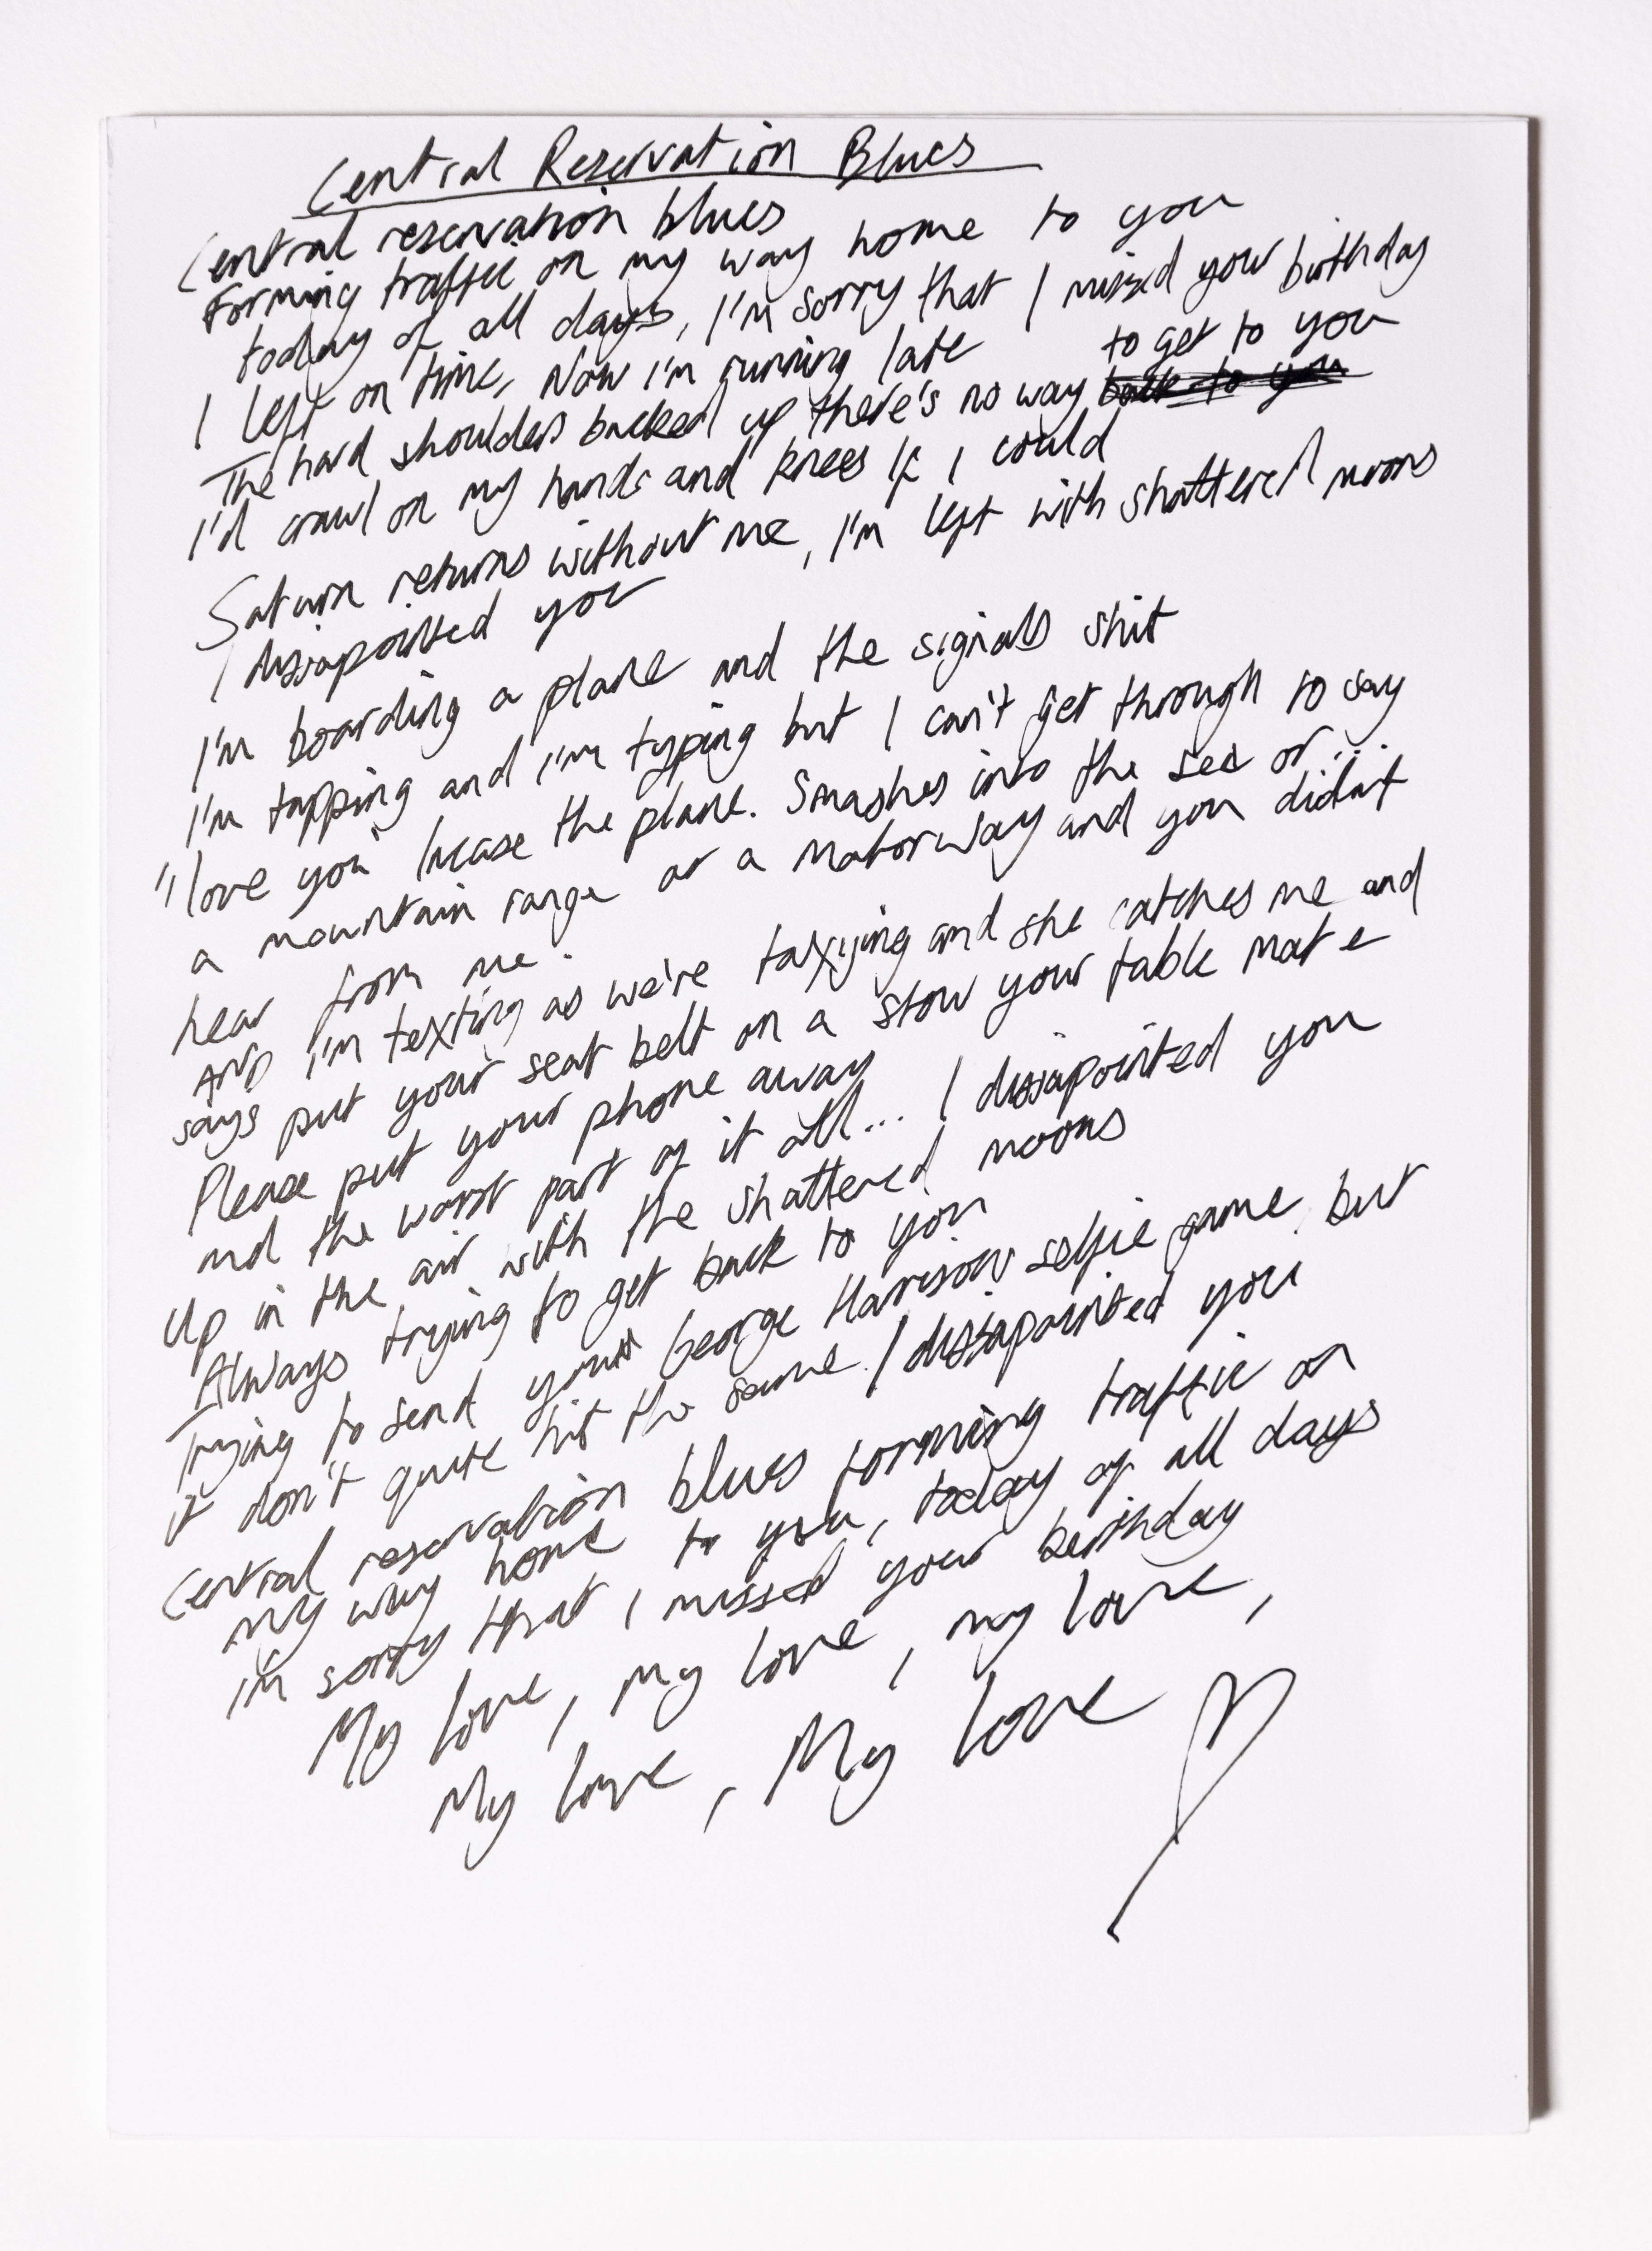 Central Reservation Blues
Central reservation blues
Forming traffic on my way home to you
today of all days, I'm sorry that I missed your birthday
I left on time, Now I'm running late
to get to you
The hard shoulders backed up there's no way back to you
I'd crawl on my hands and knees If I could
Saturn returns without me, I'm left with shattered moons
I dissapointed you
I'm boarding a plane and the signals shit
I'm tapping and I'm typing but I can't get through to say
"I love you" Incase the plane. Smashes into the sea or...
a mountain range or a motorway and you didn't
hear from me.
AND I'm texting as we're taxying and she catches me and
says put your seat belt on a stow your table mate
Please put your phone away
and the worst part of it all... I dissapointed you
Up in the air with the shattered moons
Always trying to get back to you
Trying to send your George Harrison selfie game but
it don't quite hit the same. I dissapointed you
Central reservation blues forming traffic on
my way home to you, today of all days
i'm sorry that I missed your birthday
My love, my love, my love,
My love, My love